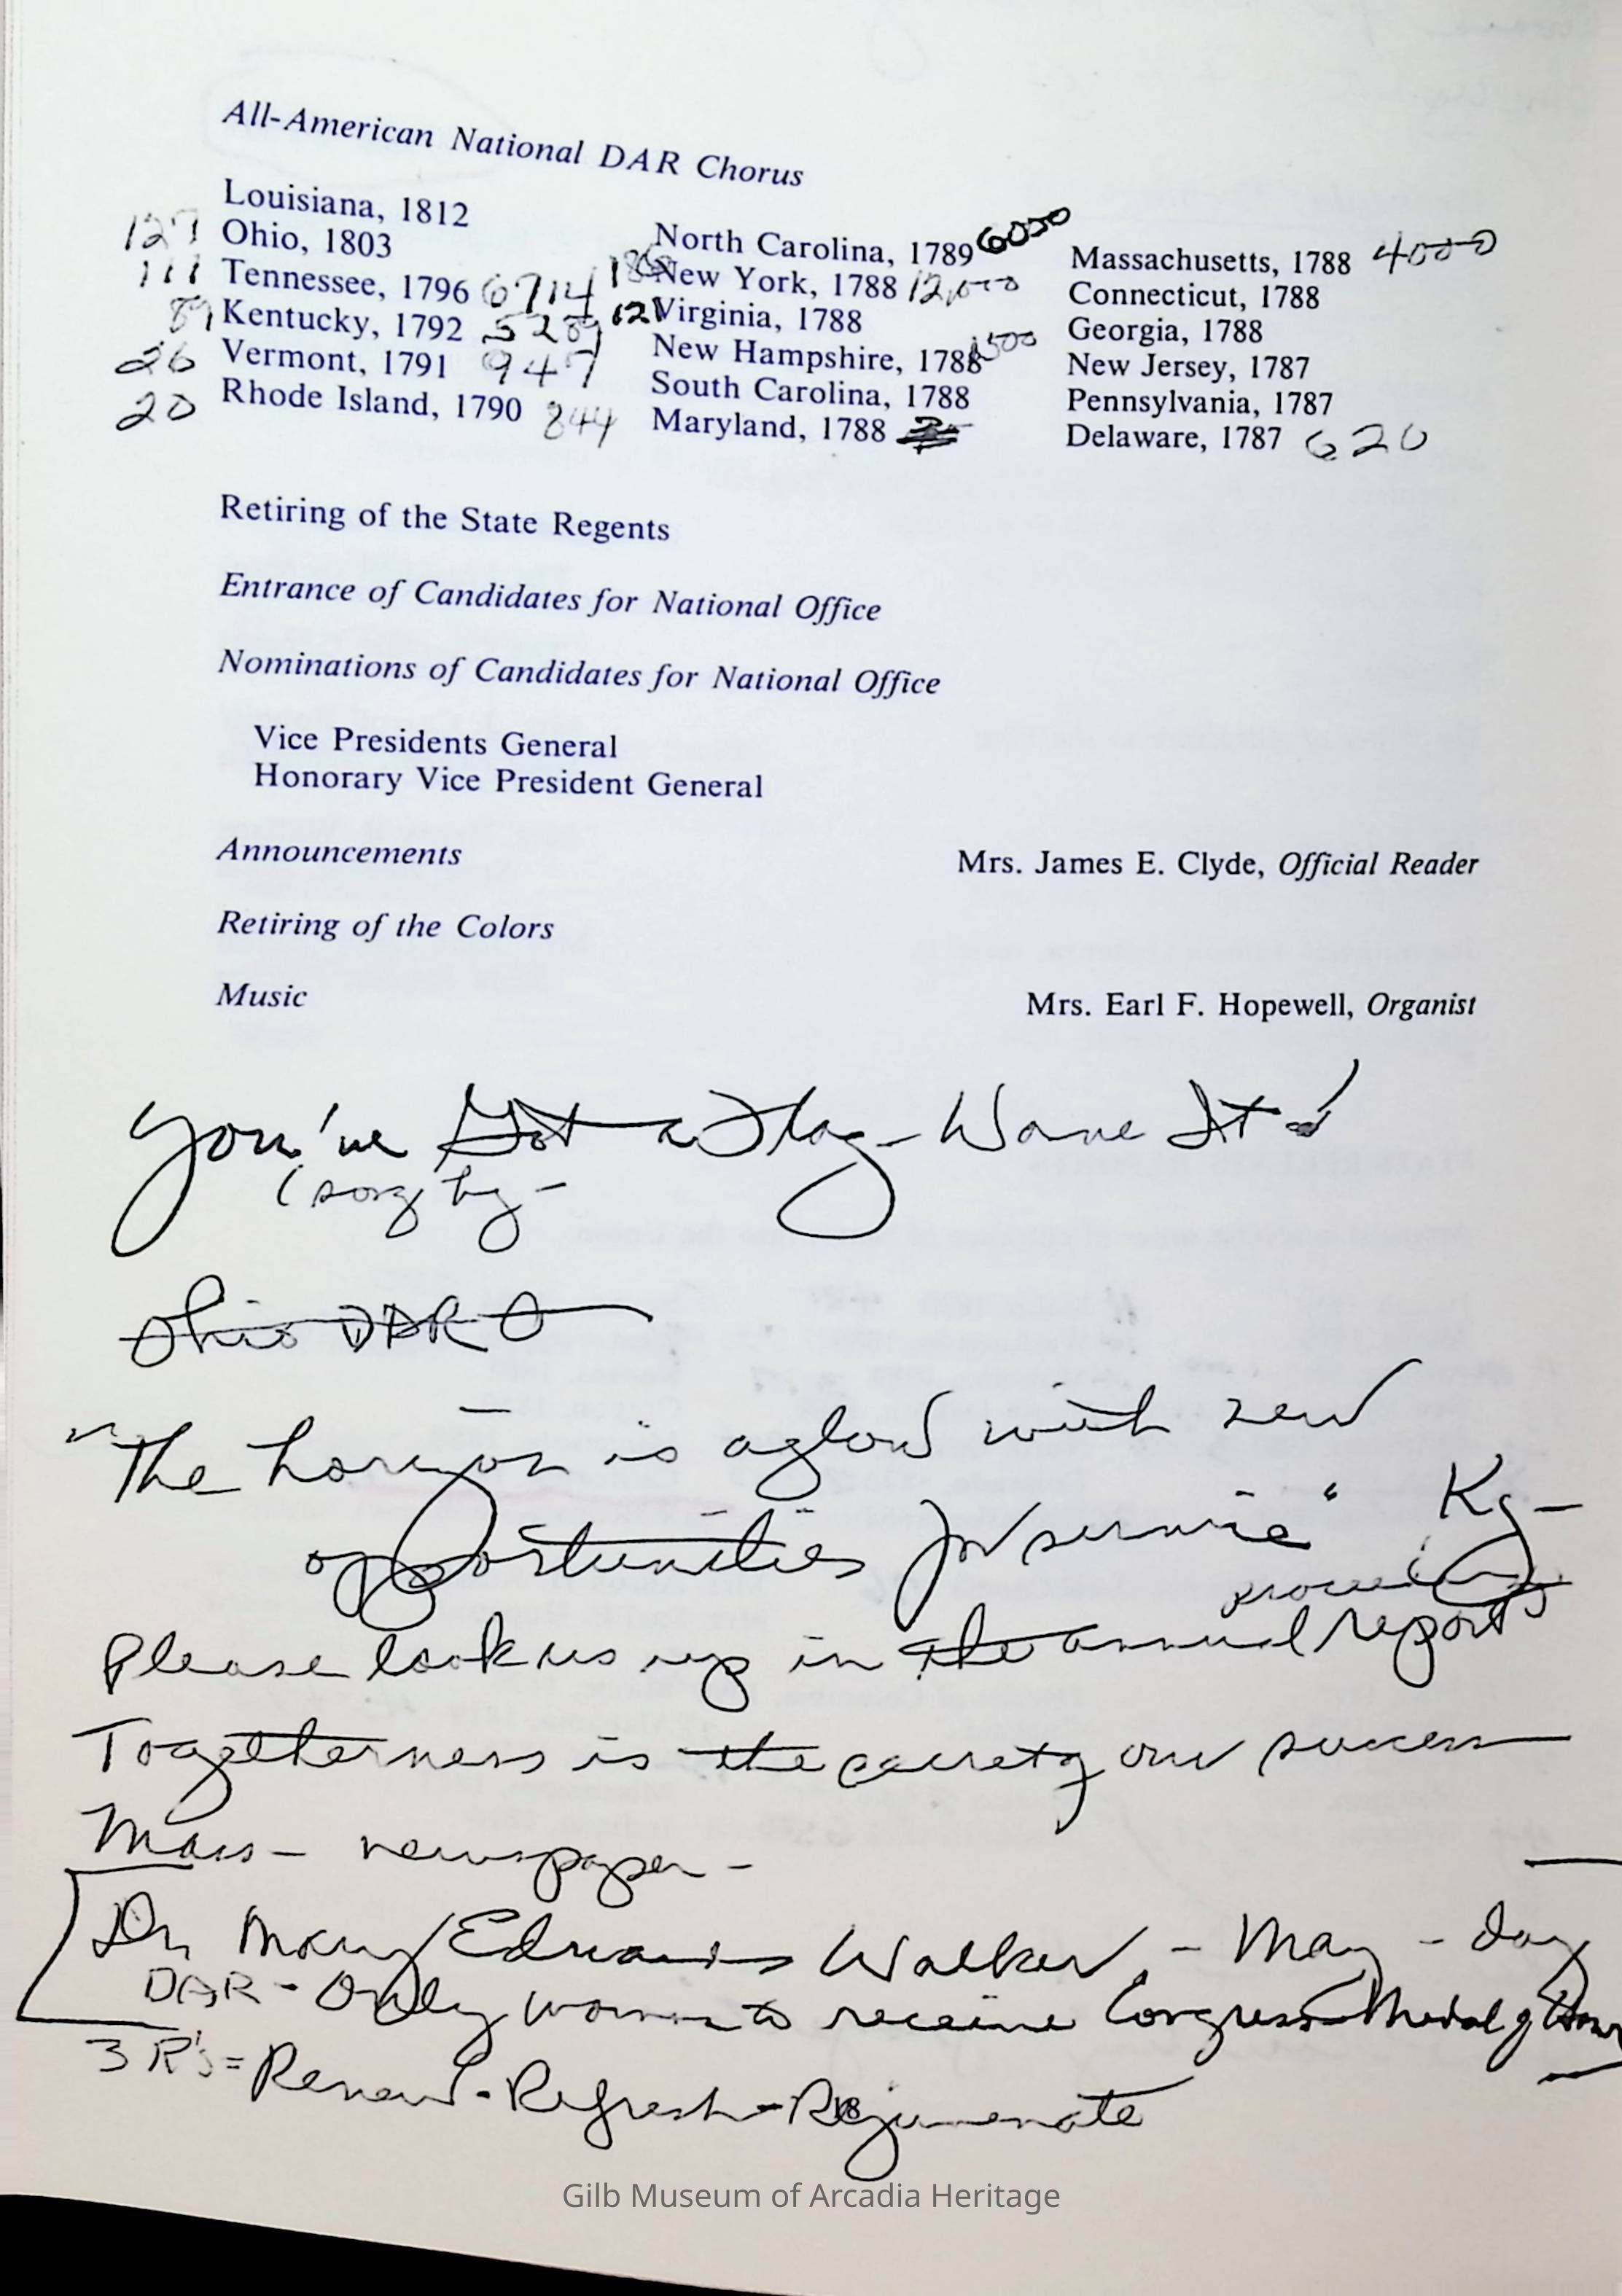 All-American National DAR Chorus
Louisiana, 1812
127 Ohio, 1803
111 Tennessee, 1796 6714
89 Kentucky, 1792 5289
26 Vermont, 1791 947
20 Rhode Island, 1790 844
North Carolina, 1789 6000
New York, 1788 12,000
121 Virginia, 1788
New Hampshire, 1788 1500
South Carolina, 1788
Maryland, 1788
Massachusetts, 1788 4000
Connecticut, 1788
Georgia, 1788
New Jersey, 1787
Pennsylvania, 1787
Delaware, 1787 620
Retiring of the State Regents
Entrance of Candidates for National Office
Nominations of Candidates for National Office
Vice Presidents General
Honorary Vice President General
Announcements Mrs. James E. Clyde, Official Reader
Retiring of the Colors
Music Mrs. Earl F. Hopewell, Organist
You've Got a Flag - Wave It!
(song by -
Ohio DAR
"The horizon is aglow with new
opportunities for service" Ky -
proceedings
Please look us up in the annual report
Togetherness is the secret of our success
Mass - newspaper -
Dr Mary Edwards Walker - May - day
DAR - Only woman to receive Congress Medal of Honor
3 R's = Renew - Refresh - Rejuvenate
18
Gilb Museum of Arcadia Heritage